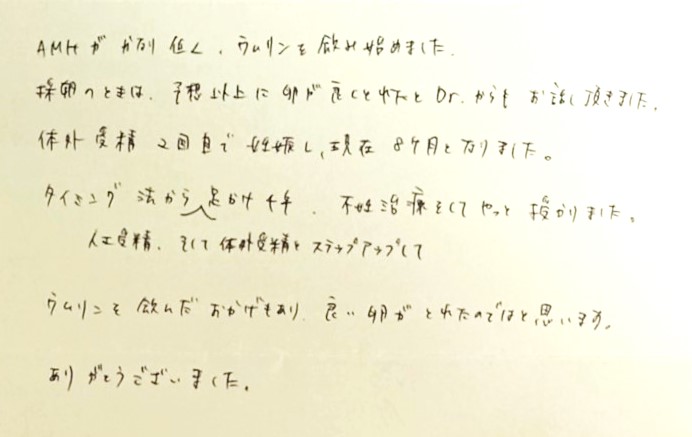 AMHが かなり 低く、ウムリンを 飲み始めました。
採卵のときは、予想以上に 卵が 良くとれたと Dr.からも お話し頂きました。
体外受精 2回目で 妊娠し、現在 8ヶ月となりました。
タイミング 法から 足かけ 4年、不妊治療をして やっと 授かりました。
人工受精、そして 体外受精と ステップアップして
ウムリンを 飲んだ おかげもあり、良い 卵が とれたのではと 思います。
ありがとうございました。